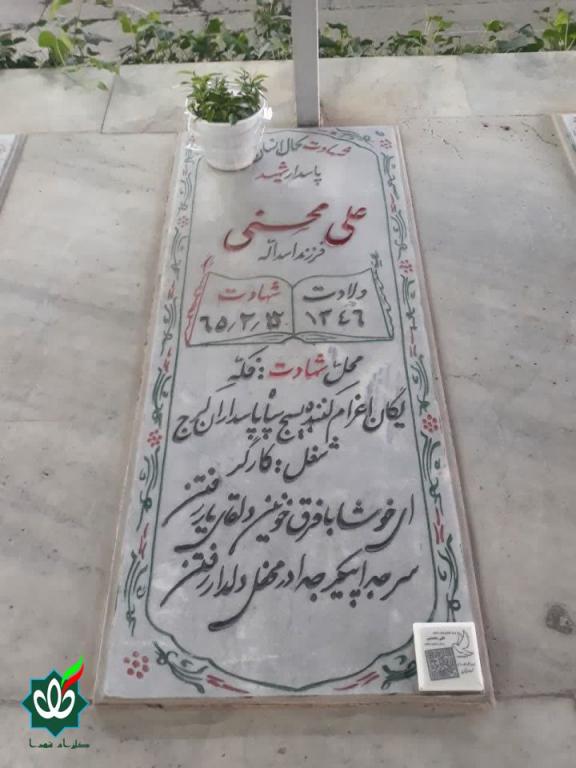 شهادت کمال انسان
پاسدار شهید
علی محسنی
فرزند اسدالله
ولادت
شهادت
۱۳۴۶
۶۵/۲/۱۵
محل شهادت: فکه
یگان اعزام کننده بسیج سپاه پاسداران کرج
شغل: کارگر
ای خوشا با فرق خونین در لقای یار رفتن
سر جدا پیکر جدا در محفل دلدار رفتن
گلزار شهدا